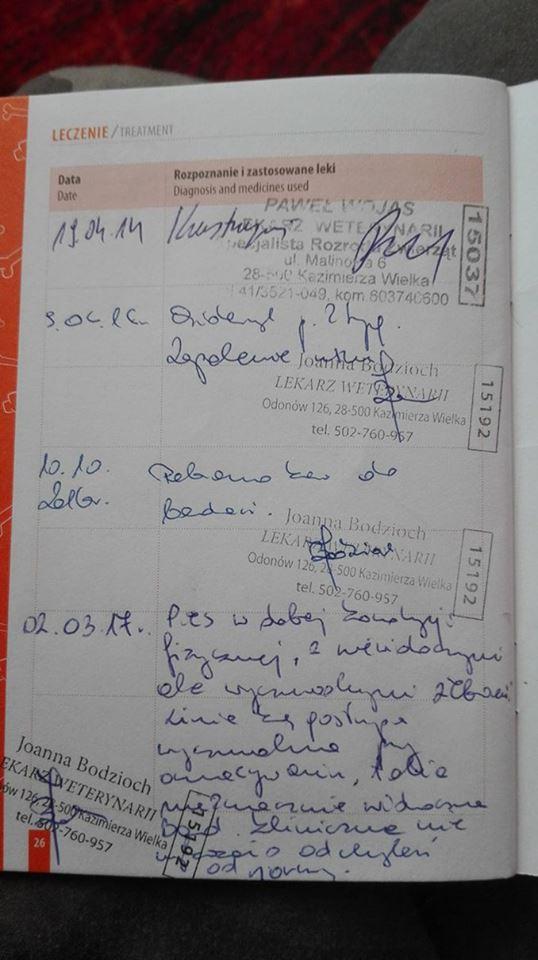 LECZENIE / TREATMENT
Data
Date
Rozpoznanie i zastosowane leki
Diagnosis and medicines used
19.04.14
PAWEŁ WOJAS
LEKARZ WETERYNARII
Specjalista Rozrodu Zwierząt
ul. Malinowa 6
28-500 Kazimierza Wielka
41/3521-049, kom. 603740600
15037
Zapalenie
Joanna Bodzioch
LEKARZ WETERYNARII
Odonów 126, 28-500 Kazimierza Wielka
tel. 502-760-957
15192
10.10.
2016r.
Pobrano krew do
badań.
Joanna Bodzioch
LEKARZ WETERYNARII
Odonów 126, 28-500 Kazimierza Wielka
tel. 502-760-957
15192
02.03.17r.
Pies w dobrej kondycji
fizycznej, z
ale wyczuwalnymi
wyczuwalna przy
omacywaniu,
nieznacznie widoczna
Bad. kliniczne nie
odchyleń
od normy.
Joanna Bodzioch
LEKARZ WETERYNARII
Odonów 126, 28-500 Kazimierza Wielka
tel. 502-760-957
15192
26